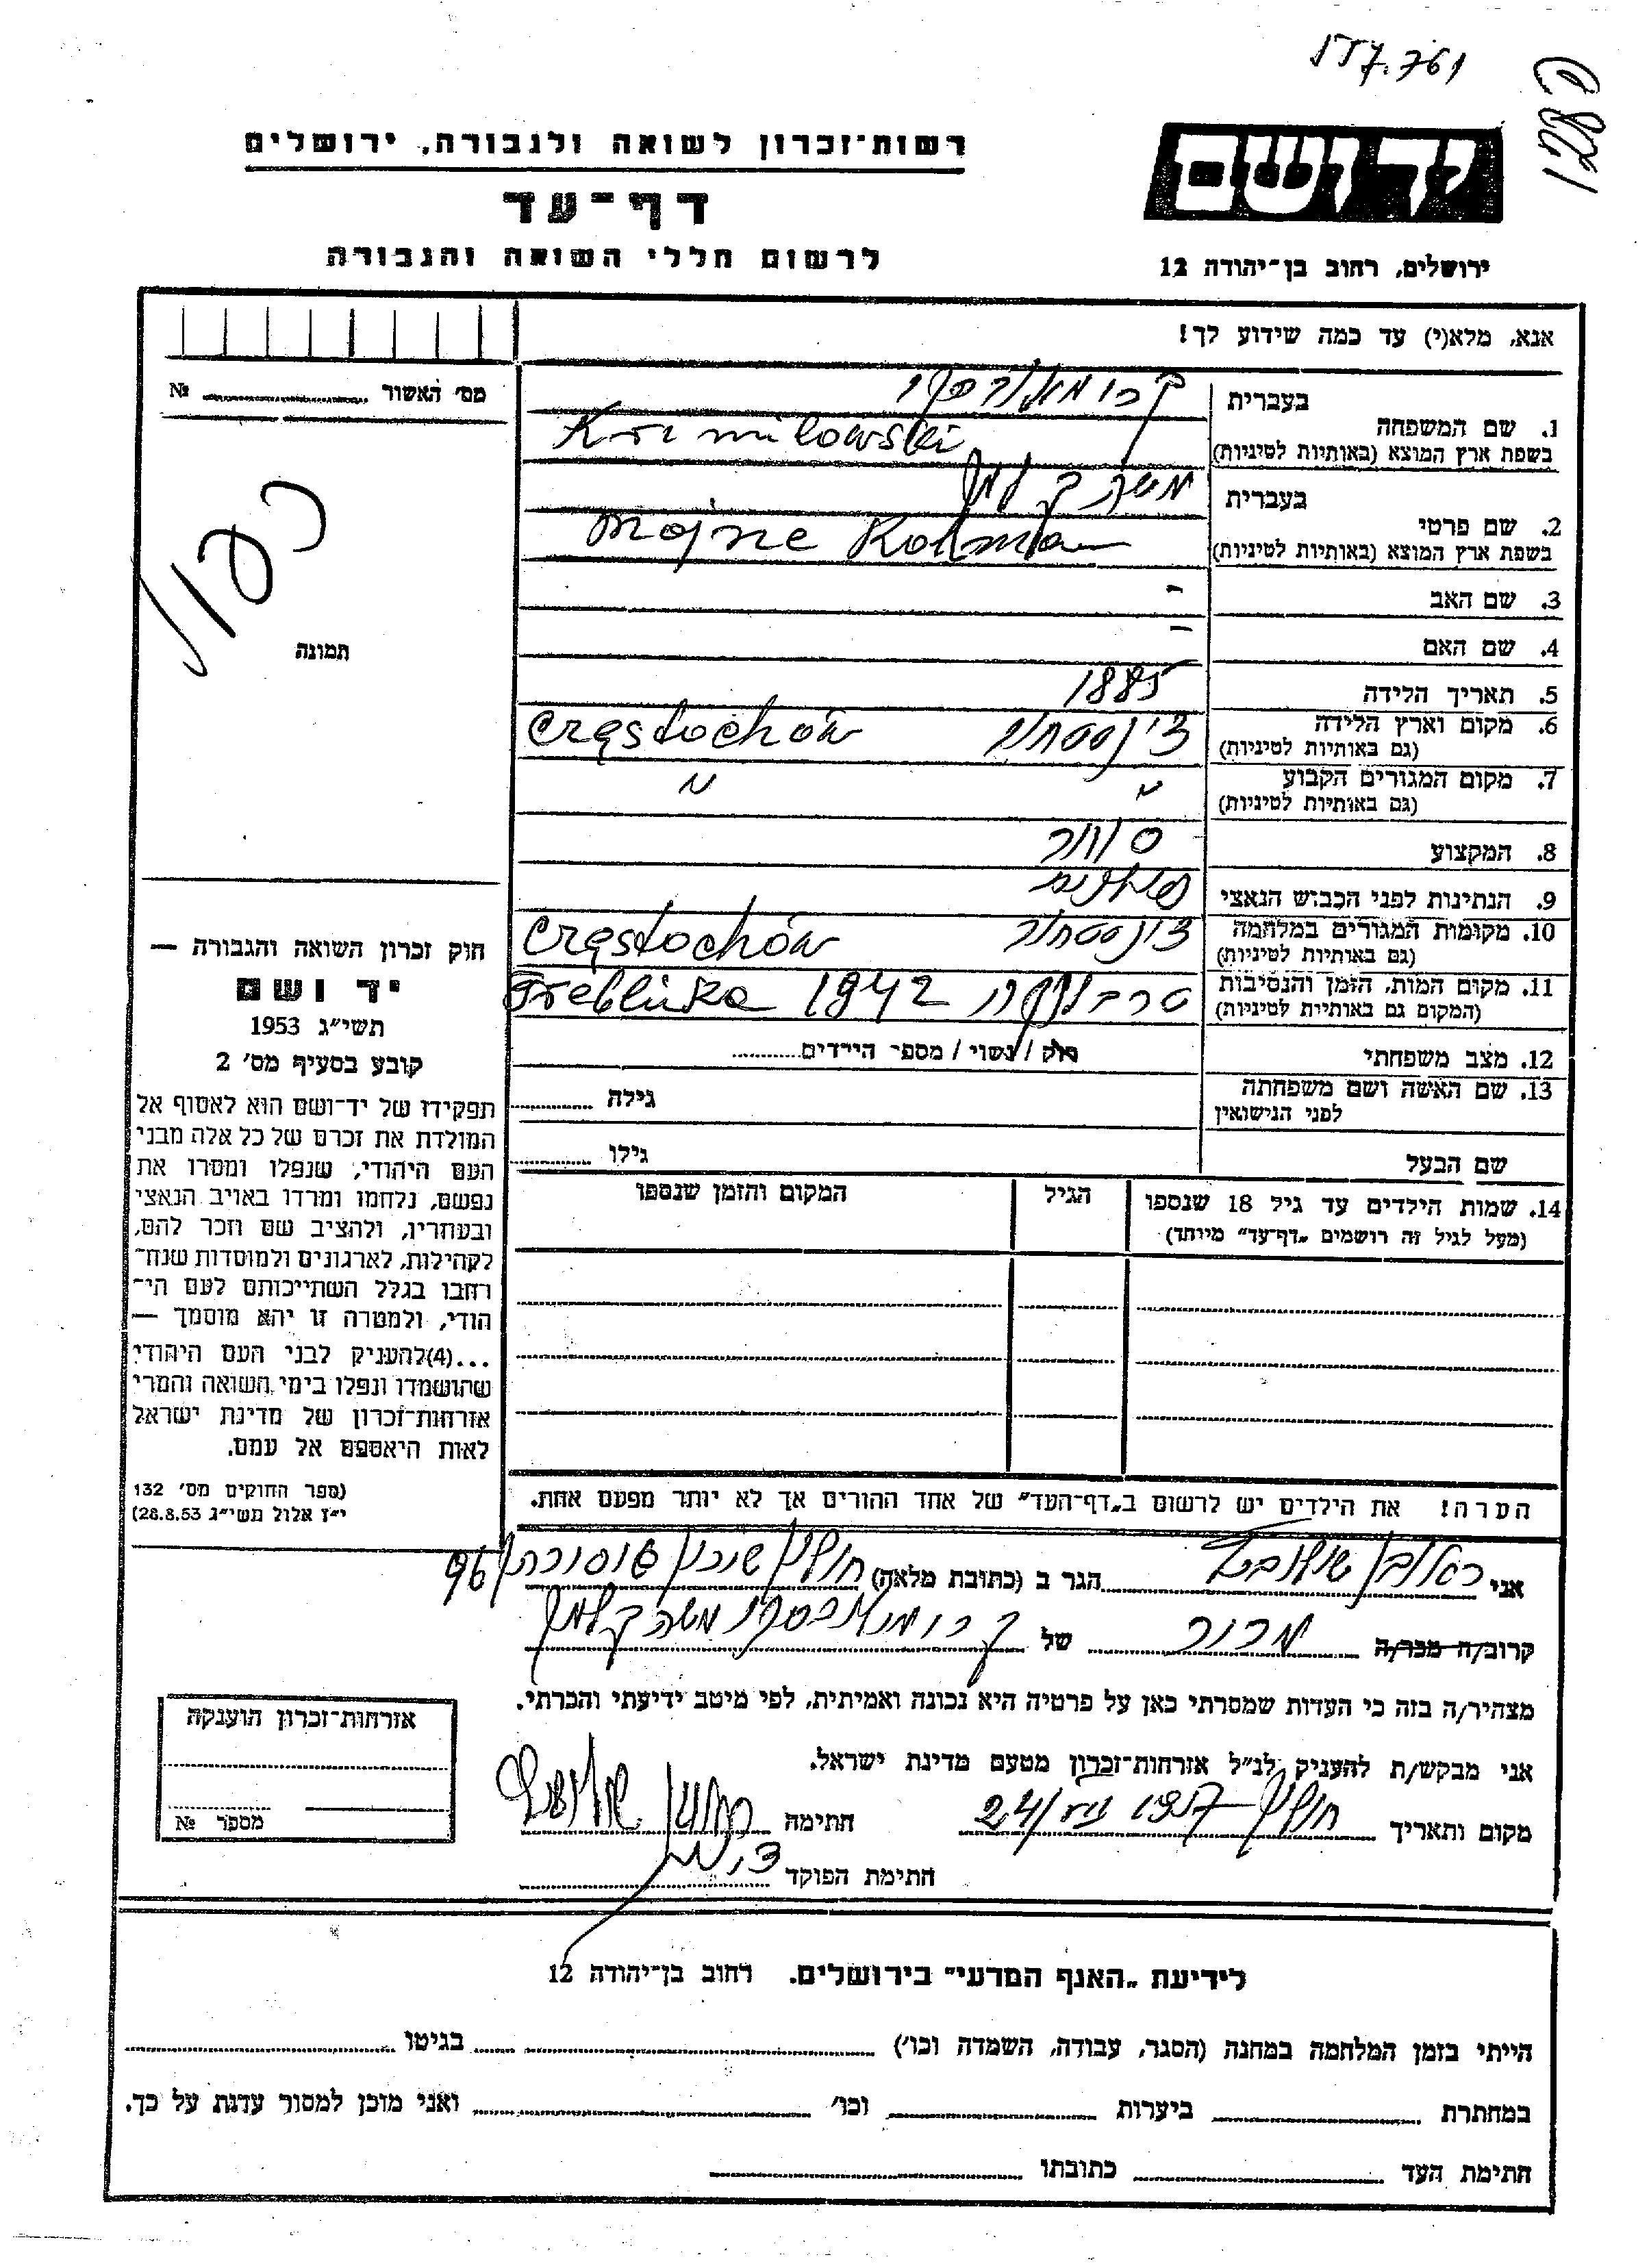 177.761
רשות־זכרון לשואה ולגבורה, ירושלים
דף־עד
לרשום חללי השואה והגבורה
יד ושם
ירושלים, רחוב בן־יהודה 12
אנא, מלא(י) עד כמה שידוע לך!
מס׳ האשור № 
כפול
תמונה
בעברית
1. שם המשפחה
בשפת ארץ המוצא (באותיות לטיניות) Kromilowski
בעברית משה קלמן
2. שם פרטי
בשפת ארץ המוצא (באותיות לטיניות) Mojsze Kalman
3. שם האב -
4. שם האם -
5. תאריך הלידה 1885
6. מקום וארץ הלידה צ'נסטחוב Częstochów
(גם באותיות לטיניות)
7. מקום המגורים הקבוע " "
(גם באותיות לטיניות)
8. המקצוע סוחר
9. הנתינות לפני הכבוש הנאצי
10. מקומות המגורים במלחמה צ'נסטחוב Częstochów
(גם באותיות לטיניות)
11. מקום המות, הזמן והנסיבות טרבלינקה 1942 Treblinka
(המקום גם באותיות לטיניות)
12. מצב משפחתי רוק / נשוי / מספר הילדים
13. שם האשה ושם משפחתה גילה
לפני הנישואין
שם הבעל גילו
14. שמות הילדים עד גיל 18 שנספו הגיל המקום והזמן שנספו
(מעל לגיל זה רושמים „דף־עד" מיוחד)
הערה! את הילדים יש לרשום ב„דף־העד" של אחד ההורים אך לא יותר מפעם אחת.
חוק זכרון השואה והגבורה —
יד ושם
תשי״ג 1953
קובע בסעיף מס׳ 2
תפקידו של יד־ושם הוא לאסוף אל
המולדת את זכרם של כל אלה מבני
העם היהודי, שנפלו ומסרו את
נפשם, נלחמו ומרדו באויב הנאצי
ובעוזריו, ולהציב שם וזכר להם,
לקהילות, לארגונים ולמוסדות שנח־
רבו בגלל השתייכותם לעם הי־
הודי, ולמטרה זו יהא מוסמך —
...(4)להעניק לבני העם היהודי
שהושמדו ונפלו בימי השואה והמרי
אזרחות־זכרון של מדינת ישראל
לאות היאספם אל עמם.
(ספר החוקים מס׳ 132
י״ז אלול תשי״ג 28.8.53)
אני ראובן הגר ב (כתובת מלאה) חולון שיכון 96
קרוב/ה מכר/ה מכור של משה קלמן
מצהיר/ה בזה כי העדות שמסרתי כאן על פרטיה היא נכונה ואמיתית, לפי מיטב ידיעתי והכרתי.
אני מבקש/ת להעניק לנ״ל אזרחות־זכרון מטעם מדינת ישראל.
מקום ותאריך חולון חתימה
חתימת הפוקד
אזרחות־זכרון הוענקה
מספר №
לידיעת „האגף המדעי" בירושלים. רחוב בן־יהודה 12
הייתי בזמן המלחמה במחנה (הסגר, עבודה, השמדה וכו׳) בגיטו
במחתרת ביערות וכו׳ ואני מוכן למסור עדות על כך.
חתימת העד כתובתו